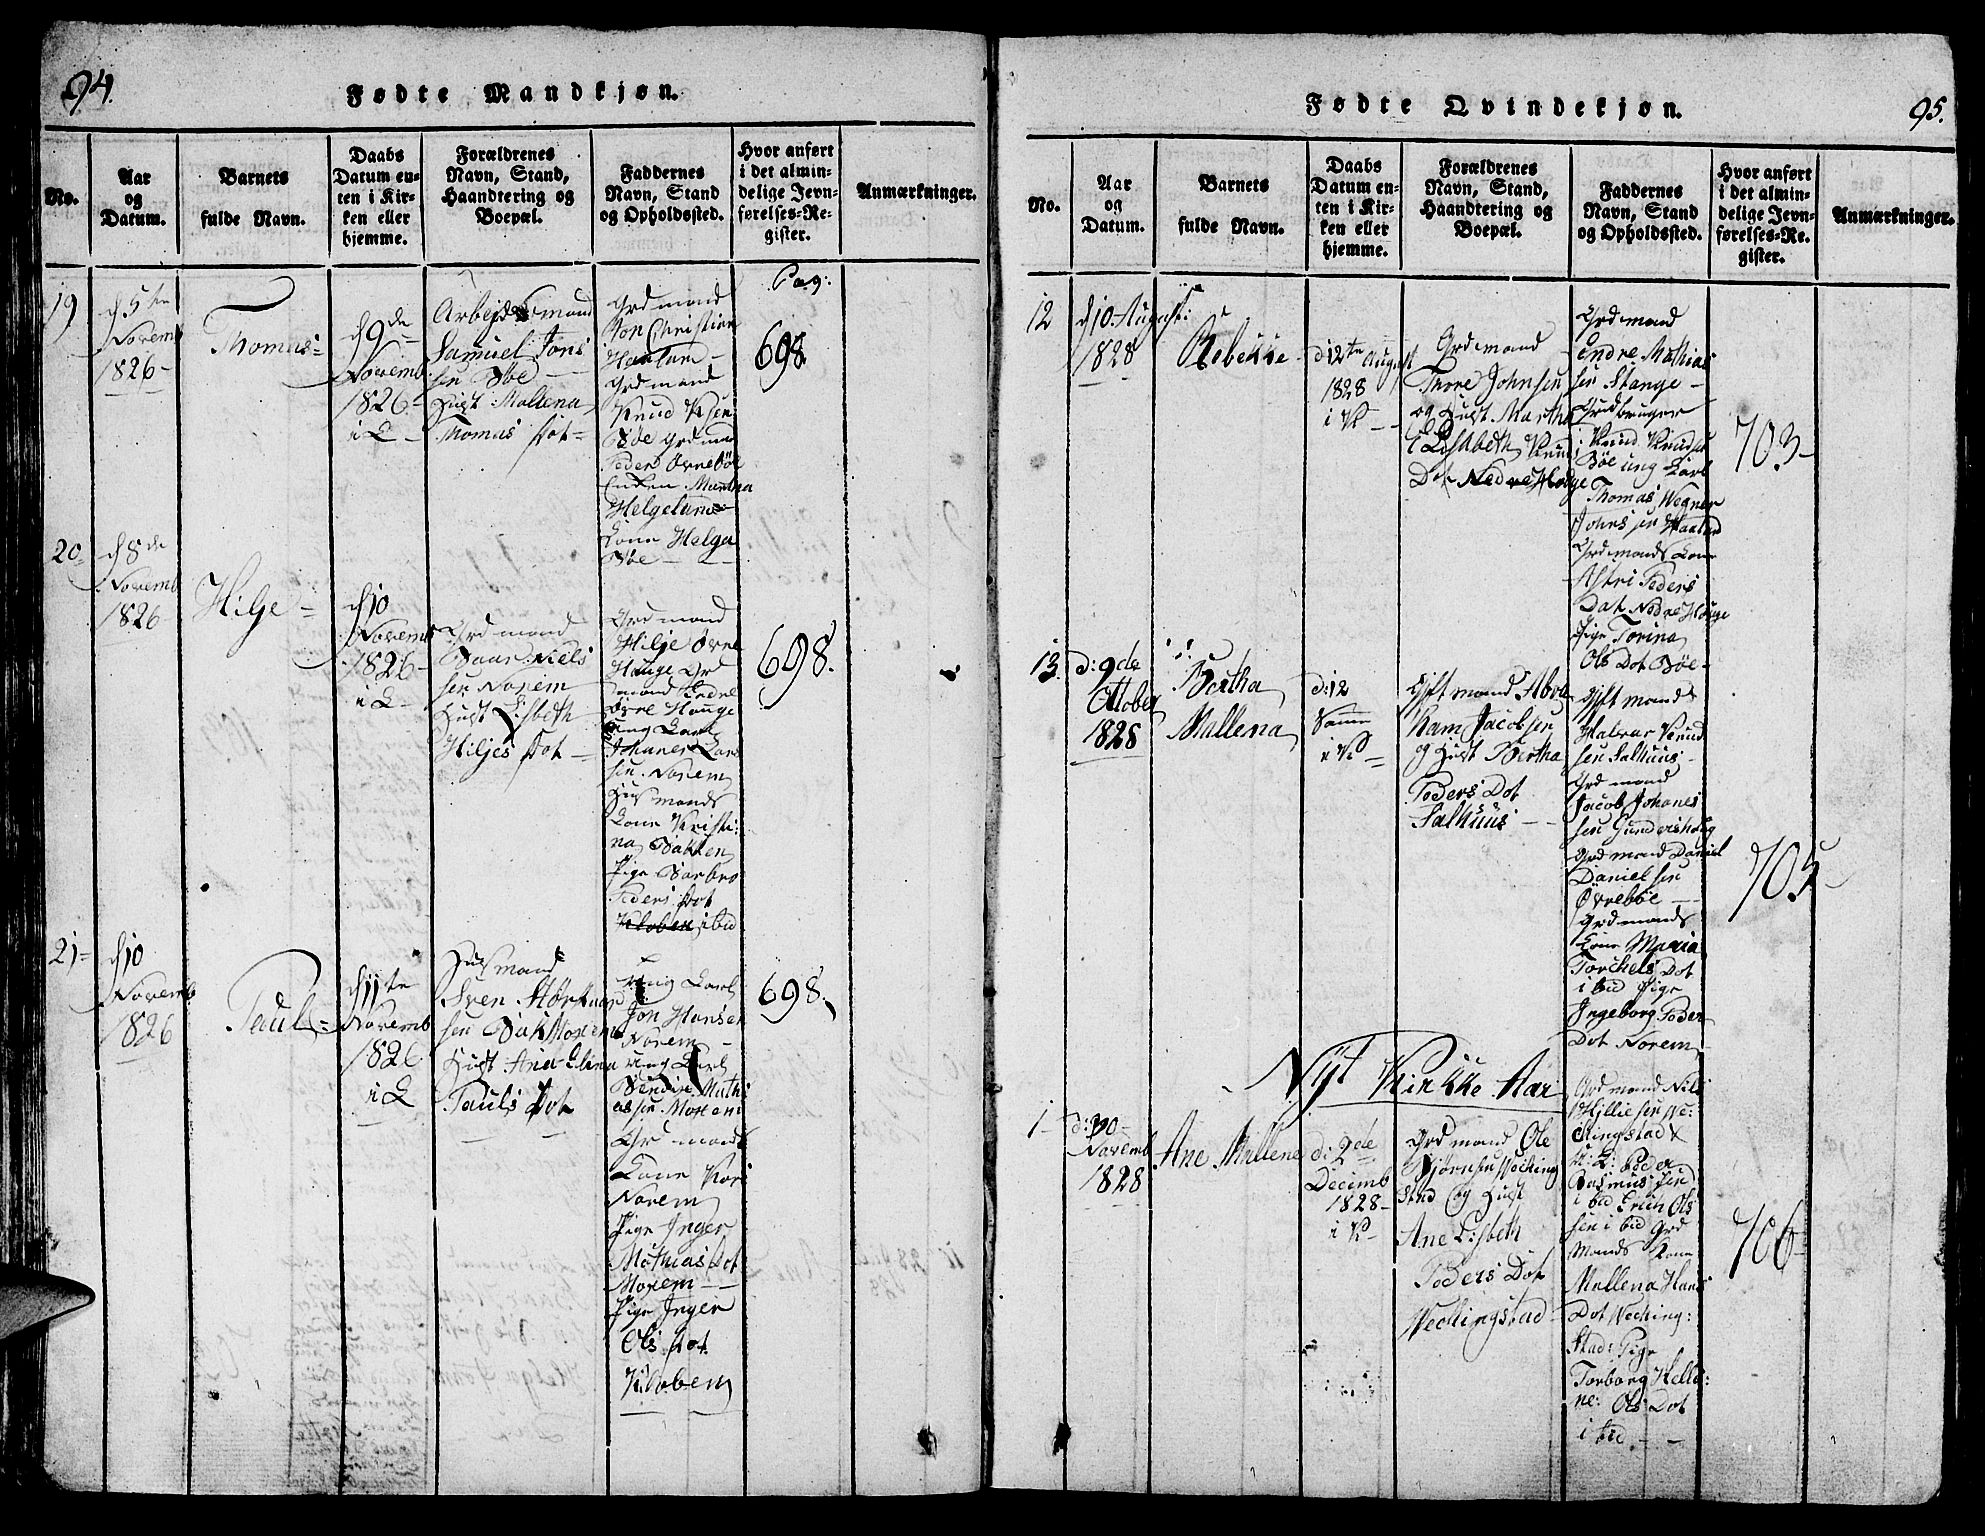 94.
Fødte Mandkjøn.
No.
Aar
og
Datum.
Barnets
fulde Navn.
Daabs
Datum en-
ten i Kir-
ken eller
hjemme.
Forældrenes
Navn, Stand,
Haandtering og
Boepæl.
Faddernes
Navn, Stand
og Opholdssted.
Hvor anført
i det almin-
delige Jevn-
førelses-Re-
gister.
Anmærkninger.
19
d 5te
Novemb
1826-
Thomas-
d 9de
Novemb.
1826-
i K-
Arbejdsmand
Samuel Jons
sen Bøe
Hust Mallena
Tomas Dot-
Grdmand
Jon Christian
Grdmand
Knud
Bøe Grdmd
Peder Øvrebøe
Enken Martha
Helgeland
Kone Helga
Bøe
Pag:
698
20
d 8de
Novemb
1826
Hilje-
d 10
Novemb
1826-
i K-
Grdmand
Baar Niels
sen Norem
Hust Lisbeth
Hiljes Dot-
Grdmand
Hilje Øvre
Hauge Grd
mand Endre
Øvre Hauge
ung Karl
Johanes Lars
sen Norem
Husmands
Kone Kristi:
na Bakken
Pige Barbro
Peders Dot
Kloben ibid
698.
21-
d 10
Novemb
1826
Paul-
d 11te
Novemb
1826
i K
Husmand
Sven
sen Bak Moxem
Hust Ana Elina
Pauls Dot
ung Karl
Jon Hansen
Norem-
ung Karl
Mathi
assen Moxem
Grdmands
Kone Kari
Norem
Pige Inger
Mathias Dot
Moxem-
Pige Inger
Ols Dot
Kloben
698.
Fødte Qvindekjøn.
95.
No.
Aar
og
Datum.
Barnets
fulde Navn.
Daabs
Datum en-
ten i Kir-
ken eller
hjemme.
Forældrenes
Navn, Stand,
Haandtering og
Boepæl.
Faddernes
Navn, Stand
og Opholdssted.
Hvor anført
i det almin-
delige Jevn-
førelses-Re-
gister.
Anmærkninger.
12
d 10 August:
1828
Rebekke
d: 12te August
1828
i K
Grdmand
Thore Johnsen
og Hust Martha
Elisabeth Knud
Dot Nedre Hauge
Grdmand
Endre Mathias
sen Stange-
Grdbruger
Knud Knudsen
Bøe ung Karl
Thomas Wegner
Johnssen
Grdmands Kone
Astri Peders
Dat Nedre Hauge
Pige Torina
Ols Dot Bøe-
703-
13
d: 9de
Ottober
1828
Bertha
Mallena
d: 12
Samme
i K-
Gift mand Abra
ham Jacobsen
og Hust Bertha
Peders Dot
Salhuus
Gift mand
Halvar Knud
sen Salhuus-
Grdmand
Jacob Johanes
sen Gundershoug
Grdmand Daniel
Danielsen
Øvrebøe
Grdmands
Kone Maria
Torckels Dot
ibid Pige
Ingeborg Peder
Dot Norem-
705-
Nyt Kirkke Aar
1-
d: 30
Novemb
1828
Ane Mallene
d: 2de
Decemb
1828-
i K-
Grdmand Ole
Bjørnsen Wecking
stad og Hust
Ane Lisbeth
Peders Dot
Weckingstad
Grdmand Nils
Hilliesen We:
Kingstad
U: K: Peder
Rasmussen
ibid Erick Ols
sen ibid Grd
Mands Kone
Mallena Hans
Dot Wecking:
Stad: Pige
Torborg Hella
ne: Ols Dot
ibid.
706-